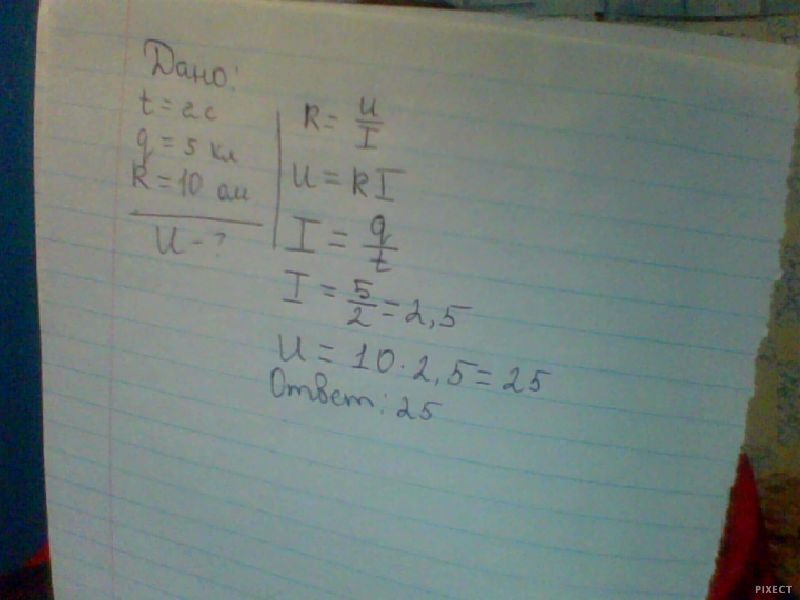 Дано:
t = 2 с
q = 5 кл
R = 10 ом
U - ?
R = U/I
U = RI
I = q/t
I = 5/2 = 2,5
U = 10 · 2,5 = 25
Ответ: 25
PIXECT